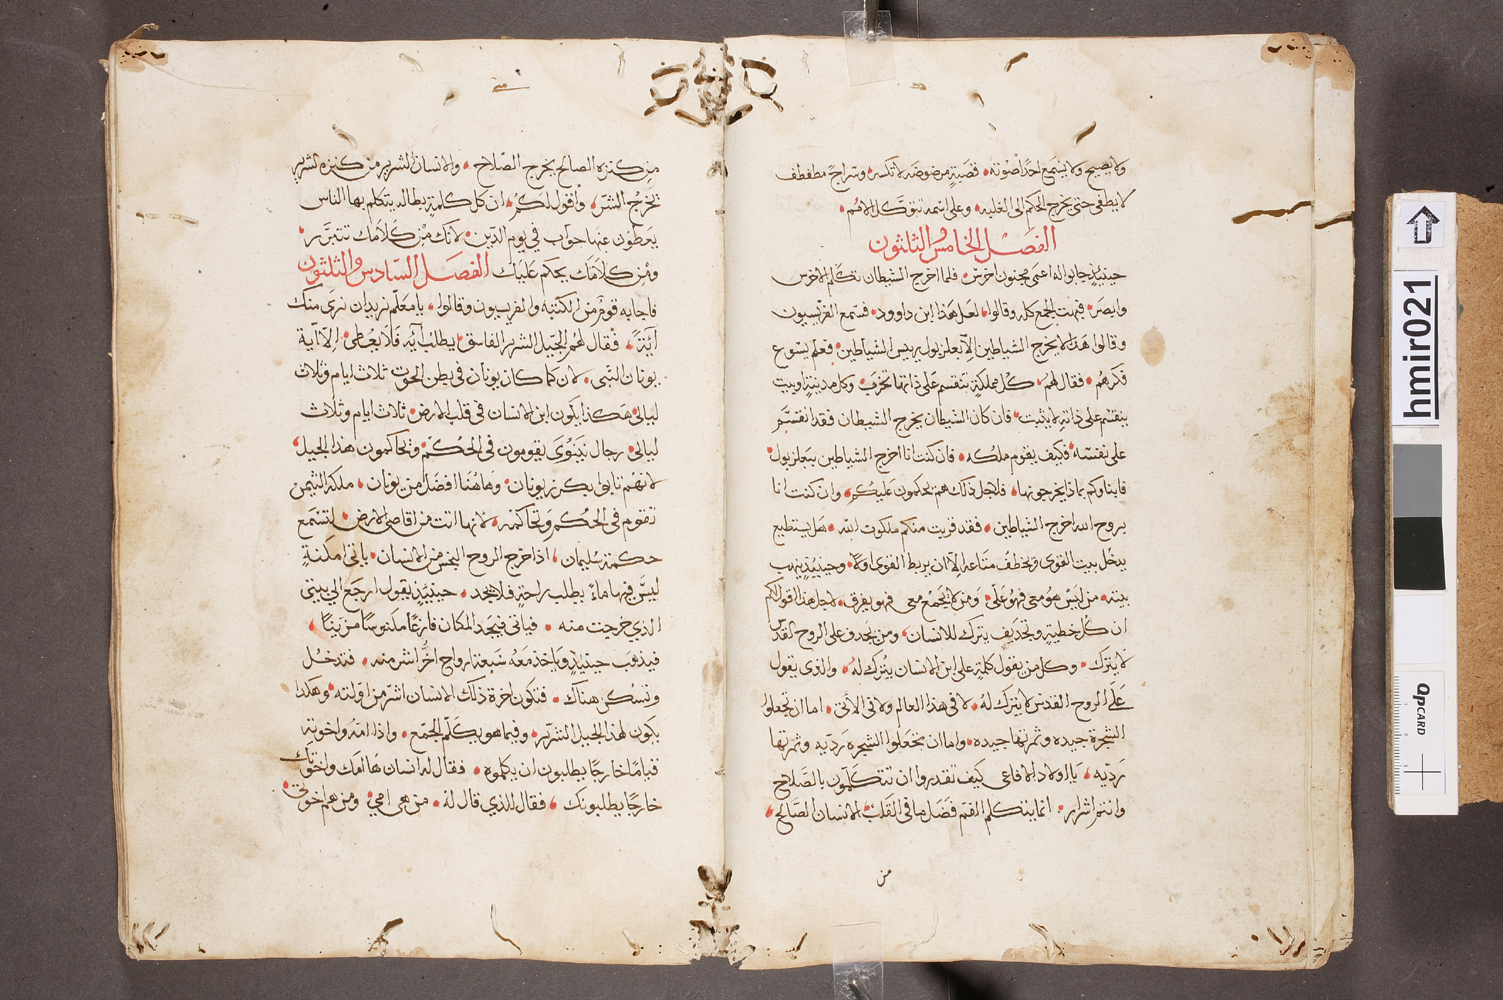 ولا يصيح ولا يستمع احدًا صوته، قصبةٍ مرضوضه لا تكسر، وسراجً مطفطف
لا يطفى حتى يخرج الحكم الى الغلبه، وعلى اسمه تتوكل الامم،
الفصل الخامس والثلثون
حينيذٍ جابوا له اعمى مجنون اخرس، فلما اخرج الشيطان تكلم الاخرس
وابصر، فبهت الجمع كله وقالوا، لعل هذا ابن داوود، فسمع الفريسيون
وقالوا هذا لا يخرج الشياطين الا ببعلزبول رييس الشياطين، فعلم يسوع
فكرهم، فقال لهم، كل مملكةٍ تنقسم على ذاتها تخرب، وكل مدينةٍ او بيت
ينقسم على ذاته لا يثبت، فان كان الشيطان يخرج الشيطان فقد انقسم
على نفسه، فكيف يقوم ملكه، فان كنت انا اخرج الشياطين ببعلزبول،
فابناوكم بماذا يخرجونها، فلاجل ذلك هم يحكمون عليكم، وان كنت انا
بروح الله اخرج الشياطين، فقد قربت منكم ملكوت الله، هل يستطيع
يدخل بيت القوي ويخطف متاعه الا ان يربط القوي اولًا، وحينيذٍ ينهب
بيته، من ليس هو معي فهو علي، ومن لا يجمع معي فهو يفرق، لاجل هذا اقول لكم
ان كل خطيةٍ وتجديف يترك للانسان، ومن يجدف على الروح القدس
لا يترك، وكل من يقول كلمة على ابن الانسان يترك له، والذي يقول
على الروح القدس لا يترك له، لا في هذا العالم ولا في الآتي، اما ان تجعلوا
الشجرة جيده وثمرتها جيده، واما ان تجعلوا الشجره رديه وثمرتها
رديه، يا اولاد الافاعي كيف تقدروا ان تتكلمون بالصلاح
وانتم اشرار، انما يتكلم الفم فضل ما في القلب، الانسان الصالح،
من
من كنزه الصالح يخرج الصلاح، والانسان الشرير من كنزه الشرير
يخرج الشر، واقول لكم، ان كل كلمة بطاله يتكلم بها الناس
يعطون عنها جواب في يوم الدين، لانك من كلامك تتبرر،
ومن كلامك يحكم عليك الفصل السادس والثلثون
فاجابه قوم من الكتبه والفريسيون وقالوا، يا معلم نريد ان نرى منك
آيةً، فقال لهم الجيل الشرير الفاسق يطلب آيه فلا يعطى، الا آية
يونان النبي، لان كما كان يونان في بطن الحوت ثلاث ايام وثلاث
ليالي، هكذا يكون ابن الانسان في قلب الارض، ثلاث ايام وثلاث
ليالي، رجال نينوى يقومون في الحكم، ويحاكمون هذا الجيل،
لانهم تابوا بكرز يونان، وهاهنا افضل من يونان، ملكة التيمن
تقوم في الحكم وتحاكمه، لانها اتت من اقاصي الارض، لتسمع
حكمة سليمان، اذا خرج الروح النجس من الانسان، ياتي امكنةٍ
ليس فيها ماءً يطلب راحةٍ فلا يجد، حينيذٍ يقول ارجع الى بيتي
الذي خرجت منه، فياتي فيجد المكان فارغًا مكنوسًا مزينًا،
فيذهب حينيذٍ وياخذ معه سبعة ارواح اخر اشر منه، فتدخل
وتسكن هناك، فتكون اخرة ذلك الانسان اشر من اولته، وهكذا
يكون لهذا الجيل الشرير، وفيما هو يكلم الجمع، واذا امه واخوته
قيامًا خارجًا يطلبون ان يكلموه، فقال له انسان ها امك واخوتك
خارجًا يطلبونك، فقال للذي قال له، من هي امي، ومن هم اخوتي،
hmir021
QP CARD